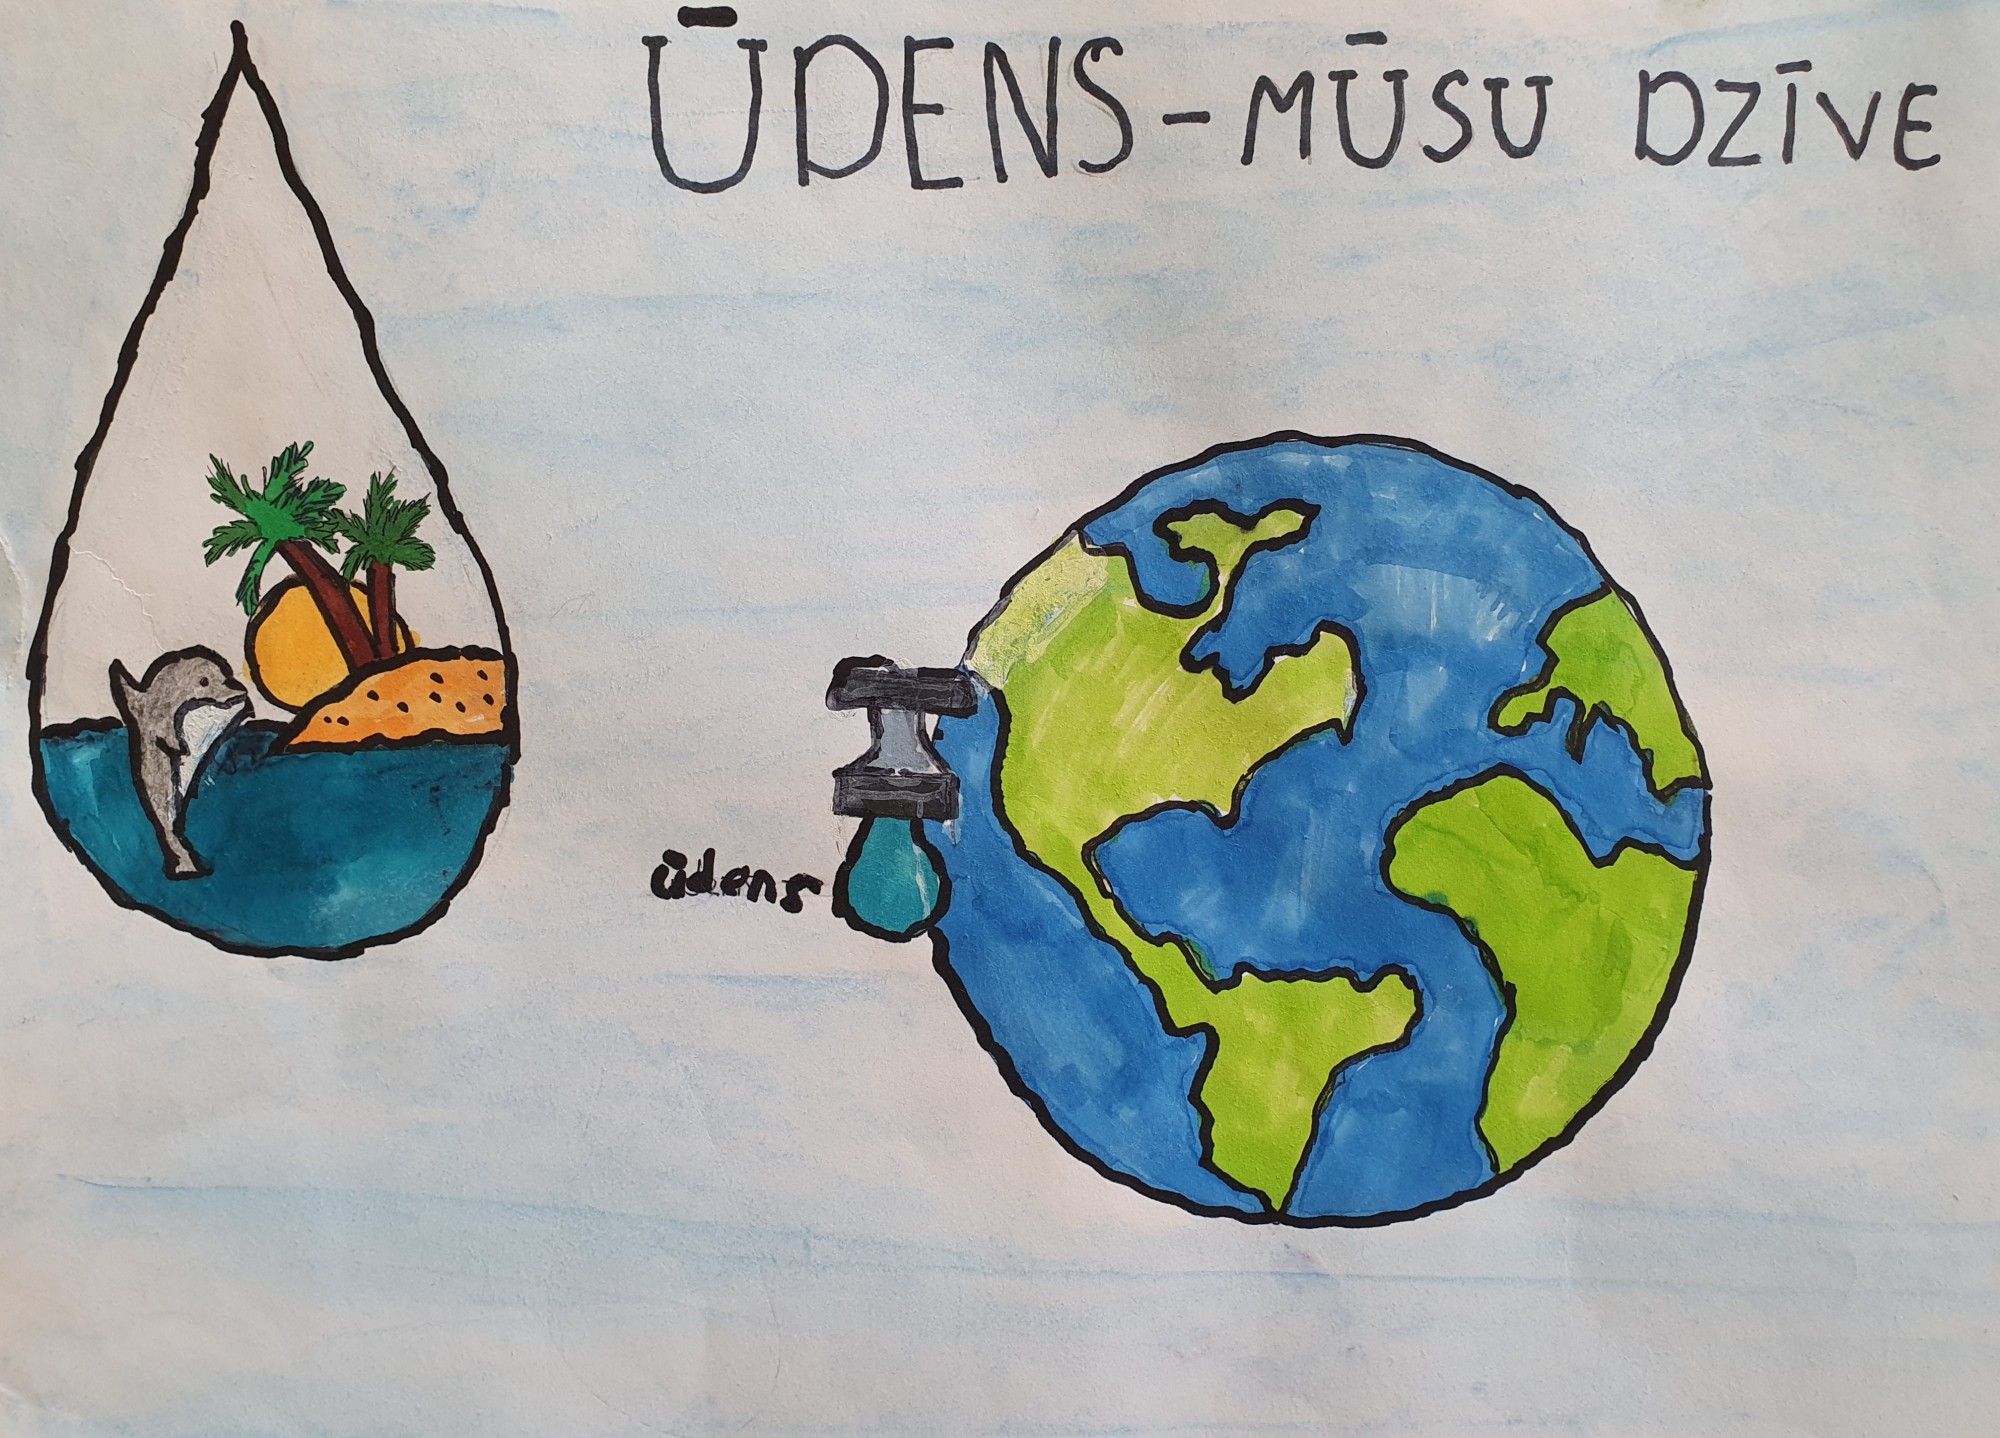 ŪDENS - MŪSU DZĪVE
ūdens